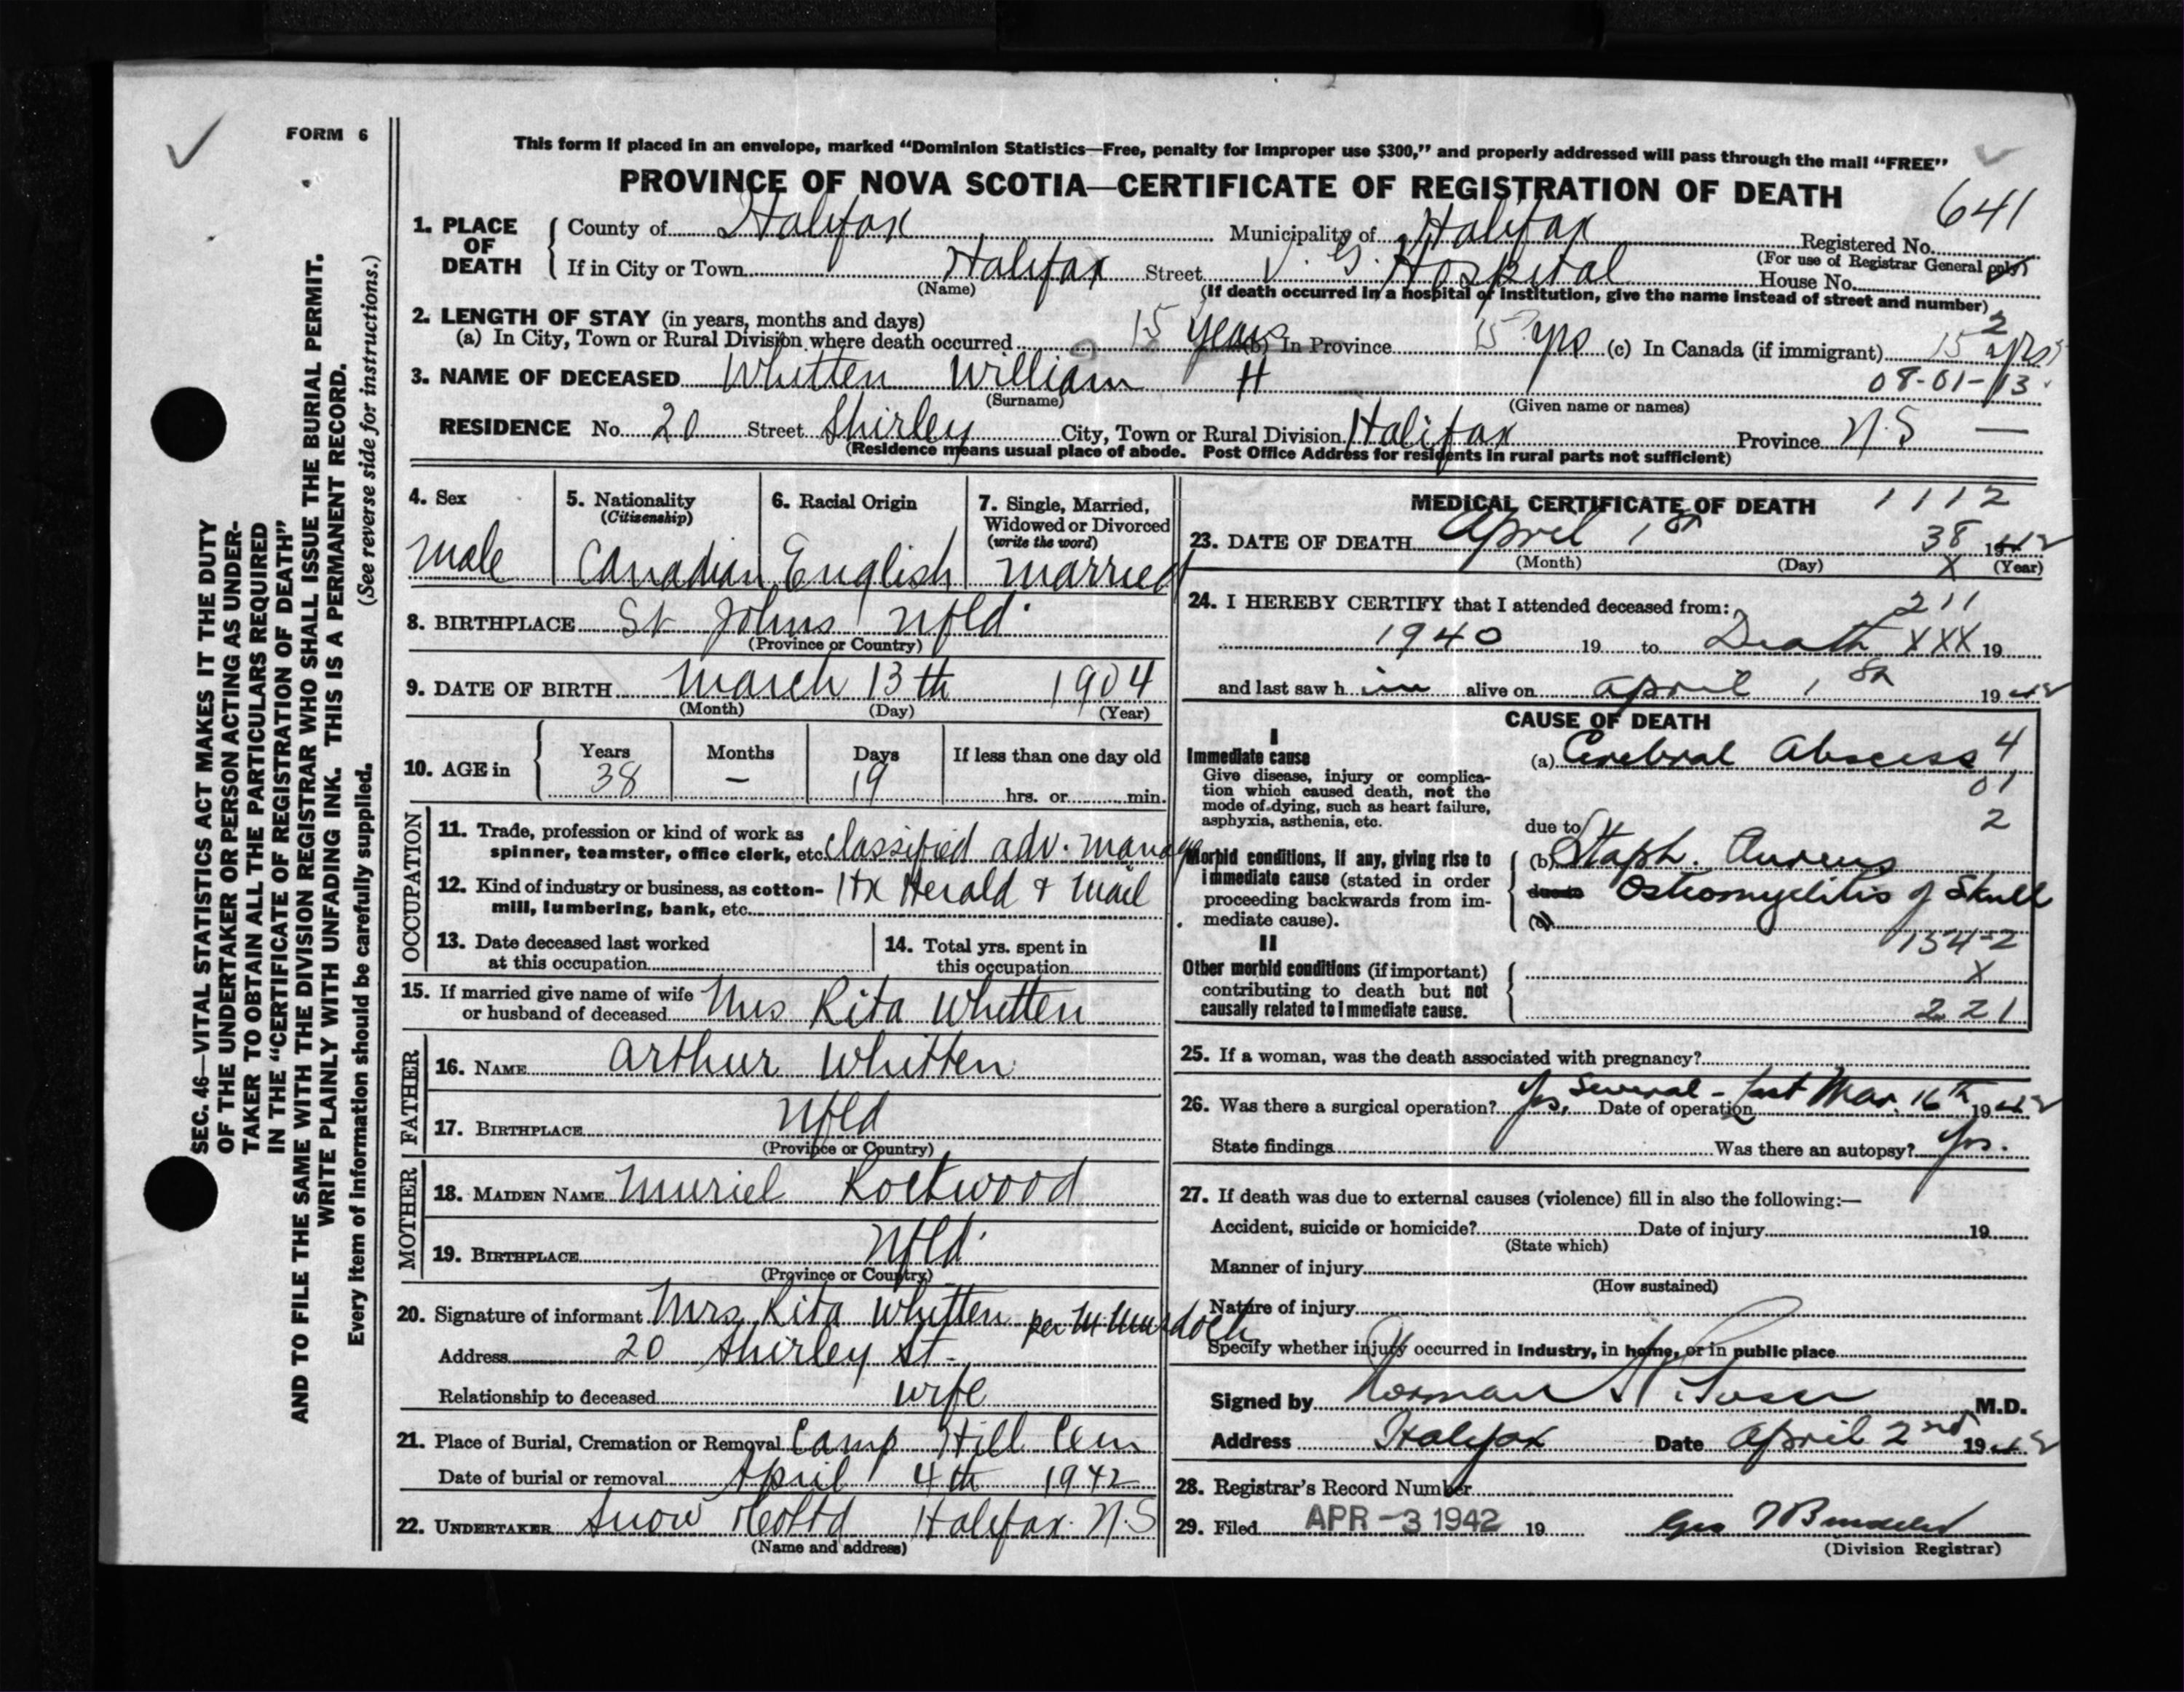 FORM 6
This form if placed in an envelope, marked “Dominion Statistics—Free, penalty for improper use $300,” and properly addressed will pass through the mail “FREE”
PROVINCE OF NOVA SCOTIA—CERTIFICATE OF REGISTRATION OF DEATH
641
1. PLACE OF DEATH County of Halifax Municipality of Halifax Registered No.
(For use of Registrar General only)
If in City or Town Halifax Street V. G. Hospital House No.
(Name) (If death occurred in a hospital or institution, give the name instead of street and number)
2. LENGTH OF STAY (in years, months and days)
2
(a) In City, Town or Rural Division where death occurred 15 years (b) In Province 15 yrs (c) In Canada (if immigrant) 15 yrs
08-01-13
3. NAME OF DECEASED Whitten William H
(Surname) (Given name or names)
RESIDENCE No. 20 Street Shirley City, Town or Rural Division Halifax Province N.S —
(Residence means usual place of abode. Post Office Address for residents in rural parts not sufficient)
4. Sex
male
5. Nationality
(Citizenship)
Canadian
6. Racial Origin
English
7. Single, Married, Widowed or Divorced
(write the word)
married
8. BIRTHPLACE St Johns Nfld.
(Province or Country)
9. DATE OF BIRTH March 13th 1904
(Month) (Day) (Year)
10. AGE in Years Months Days If less than one day old
38 — 19 hrs. or min.
OCCUPATION
11. Trade, profession or kind of work as
spinner, teamster, office clerk, etc. classified adv. manage
12. Kind of industry or business, as cotton-
mill, lumbering, bank, etc. Hx Herald & Mail
13. Date deceased last worked
at this occupation
14. Total yrs. spent in
this occupation
15. If married give name of wife
or husband of deceased Mrs Rita Whitten
FATHER
16. NAME Arthur Whitten
17. BIRTHPLACE Nfld
(Province or Country)
MOTHER
18. MAIDEN NAME Muriel Rockwood
19. BIRTHPLACE Nfld.
(Province or Country)
20. Signature of informant Mrs. Rita Whitten per M Murdoch
Address 20 Shirley St.
Relationship to deceased wife
21. Place of Burial, Cremation or Removal Camp Hill Cem
Date of burial or removal April 4th 1942
22. UNDERTAKER Snow & Co Ltd Halifax. N.S
(Name and address)
MEDICAL CERTIFICATE OF DEATH 1112
23. DATE OF DEATH April 1st 38 1942
(Month) (Day) X (Year)
24. I HEREBY CERTIFY that I attended deceased from:
211
1940 19 to Death XXX 19
and last saw him alive on April 1st 1942
CAUSE OF DEATH
I
Immediate cause
Give disease, injury or complica-
tion which caused death, not the
mode of dying, such as heart failure,
asphyxia, asthenia, etc.
(a) Cerebral Abscess 4
01
2
due to
Morbid conditions, if any, giving rise to
immediate cause (stated in order
proceeding backwards from im-
mediate cause).
(b) Staph. Aureus
due to Osteomyelitis of Skull
(c)
154-2
II
Other morbid conditions (if important)
contributing to death but not
causally related to immediate cause.
X
221
25. If a woman, was the death associated with pregnancy?
26. Was there a surgical operation? Yes, Several - last Date of operation Mar. 16th 1942
State findings Was there an autopsy? Yes.
27. If death was due to external causes (violence) fill in also the following:—
Accident, suicide or homicide? Date of injury 19
(State which)
Manner of injury
(How sustained)
Nature of injury
Specify whether injury occurred in industry, in home, or in public place
Signed by Norman M.D.
Address Halifax Date April 2nd 1942
28. Registrar's Record Number
29. Filed APR -3 1942 19
(Division Registrar)
SEC. 46—VITAL STATISTICS ACT MAKES IT THE DUTY
OF THE UNDERTAKER OR PERSON ACTING AS UNDER-
TAKER TO OBTAIN ALL THE PARTICULARS REQUIRED
IN THE “CERTIFICATE OF REGISTRATION OF DEATH”
AND TO FILE THE SAME WITH THE DIVISION REGISTRAR WHO SHALL ISSUE THE BURIAL PERMIT.
WRITE PLAINLY WITH UNFADING INK. THIS IS A PERMANENT RECORD.
Every item of information should be carefully supplied. (See reverse side for instructions.)